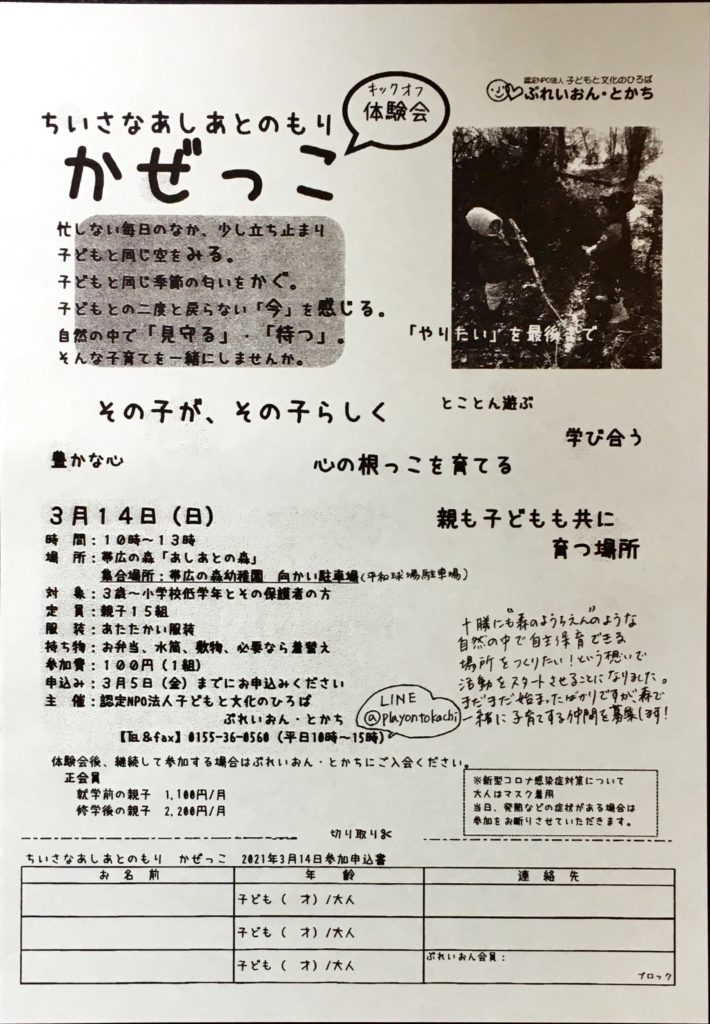 認定NPO法人 子どもと文化のひろば
ぷれいおん・とかち
キックオフ
体験会
ちいさなあしあとのもり
かぜっこ
忙しない毎日のなか、少し立ち止まり
子どもと同じ空をみる。
子どもと同じ季節の匂いをかぐ。
子どもとの二度と戻らない「今」を感じる。
自然の中で「見守る」・「待つ」。
そんな子育てを一緒にしませんか。
「やりたい」を最後まで
その子が、その子らしく
とことん遊ぶ
学び合う
豊かな心
心の根っこを育てる
親も子どもも共に
育つ場所
3月14日(日)
時 間:10時~13時
場 所:帯広の森「あしあとの森」
集合場所:帯広の森幼稚園 向かい駐車場(平和球場駐車場)
対 象:3歳~小学校低学年とその保護者の方
定 員:親子15組
服 装:あたたかい服装
持ち物:お弁当、水筒、敷物、必要なら着替え
参加費:100円(1組)
申込み:3月5日(金)までにお申込みください
主 催:認定NPO法人子どもと文化のひろば
ぷれいおん・とかち
【℡&fax】0155-36-0560(平日10時~15時)
LINE
@playontokachi
十勝にも"森のようちえん"のような
自然の中で自主保育できる
場所をつくりたい!という想いで
活動をスタートさせることになりました。
まだまだ始まったばかりですが、森で
一緒に子育てする仲間を募集します!
体験会後、継続して参加する場合はぷれいおん・とかちにご入会ください。
正会員
就学前の親子 1,100円/月
修学後の親子 2,200円/月
※新型コロナ感染症対策について
大人はマスク着用
当日、発熱などの症状がある場合は
参加をお断りさせていただきます。
切り取り✂
ちいさなあしあとのもり かぜっこ 2021年3月14日参加申込書
お名前 年 齢 連絡先
子ども( 才)/大人
子ども( 才)/大人
子ども( 才)/大人
ぷれいおん会員:
ブロック